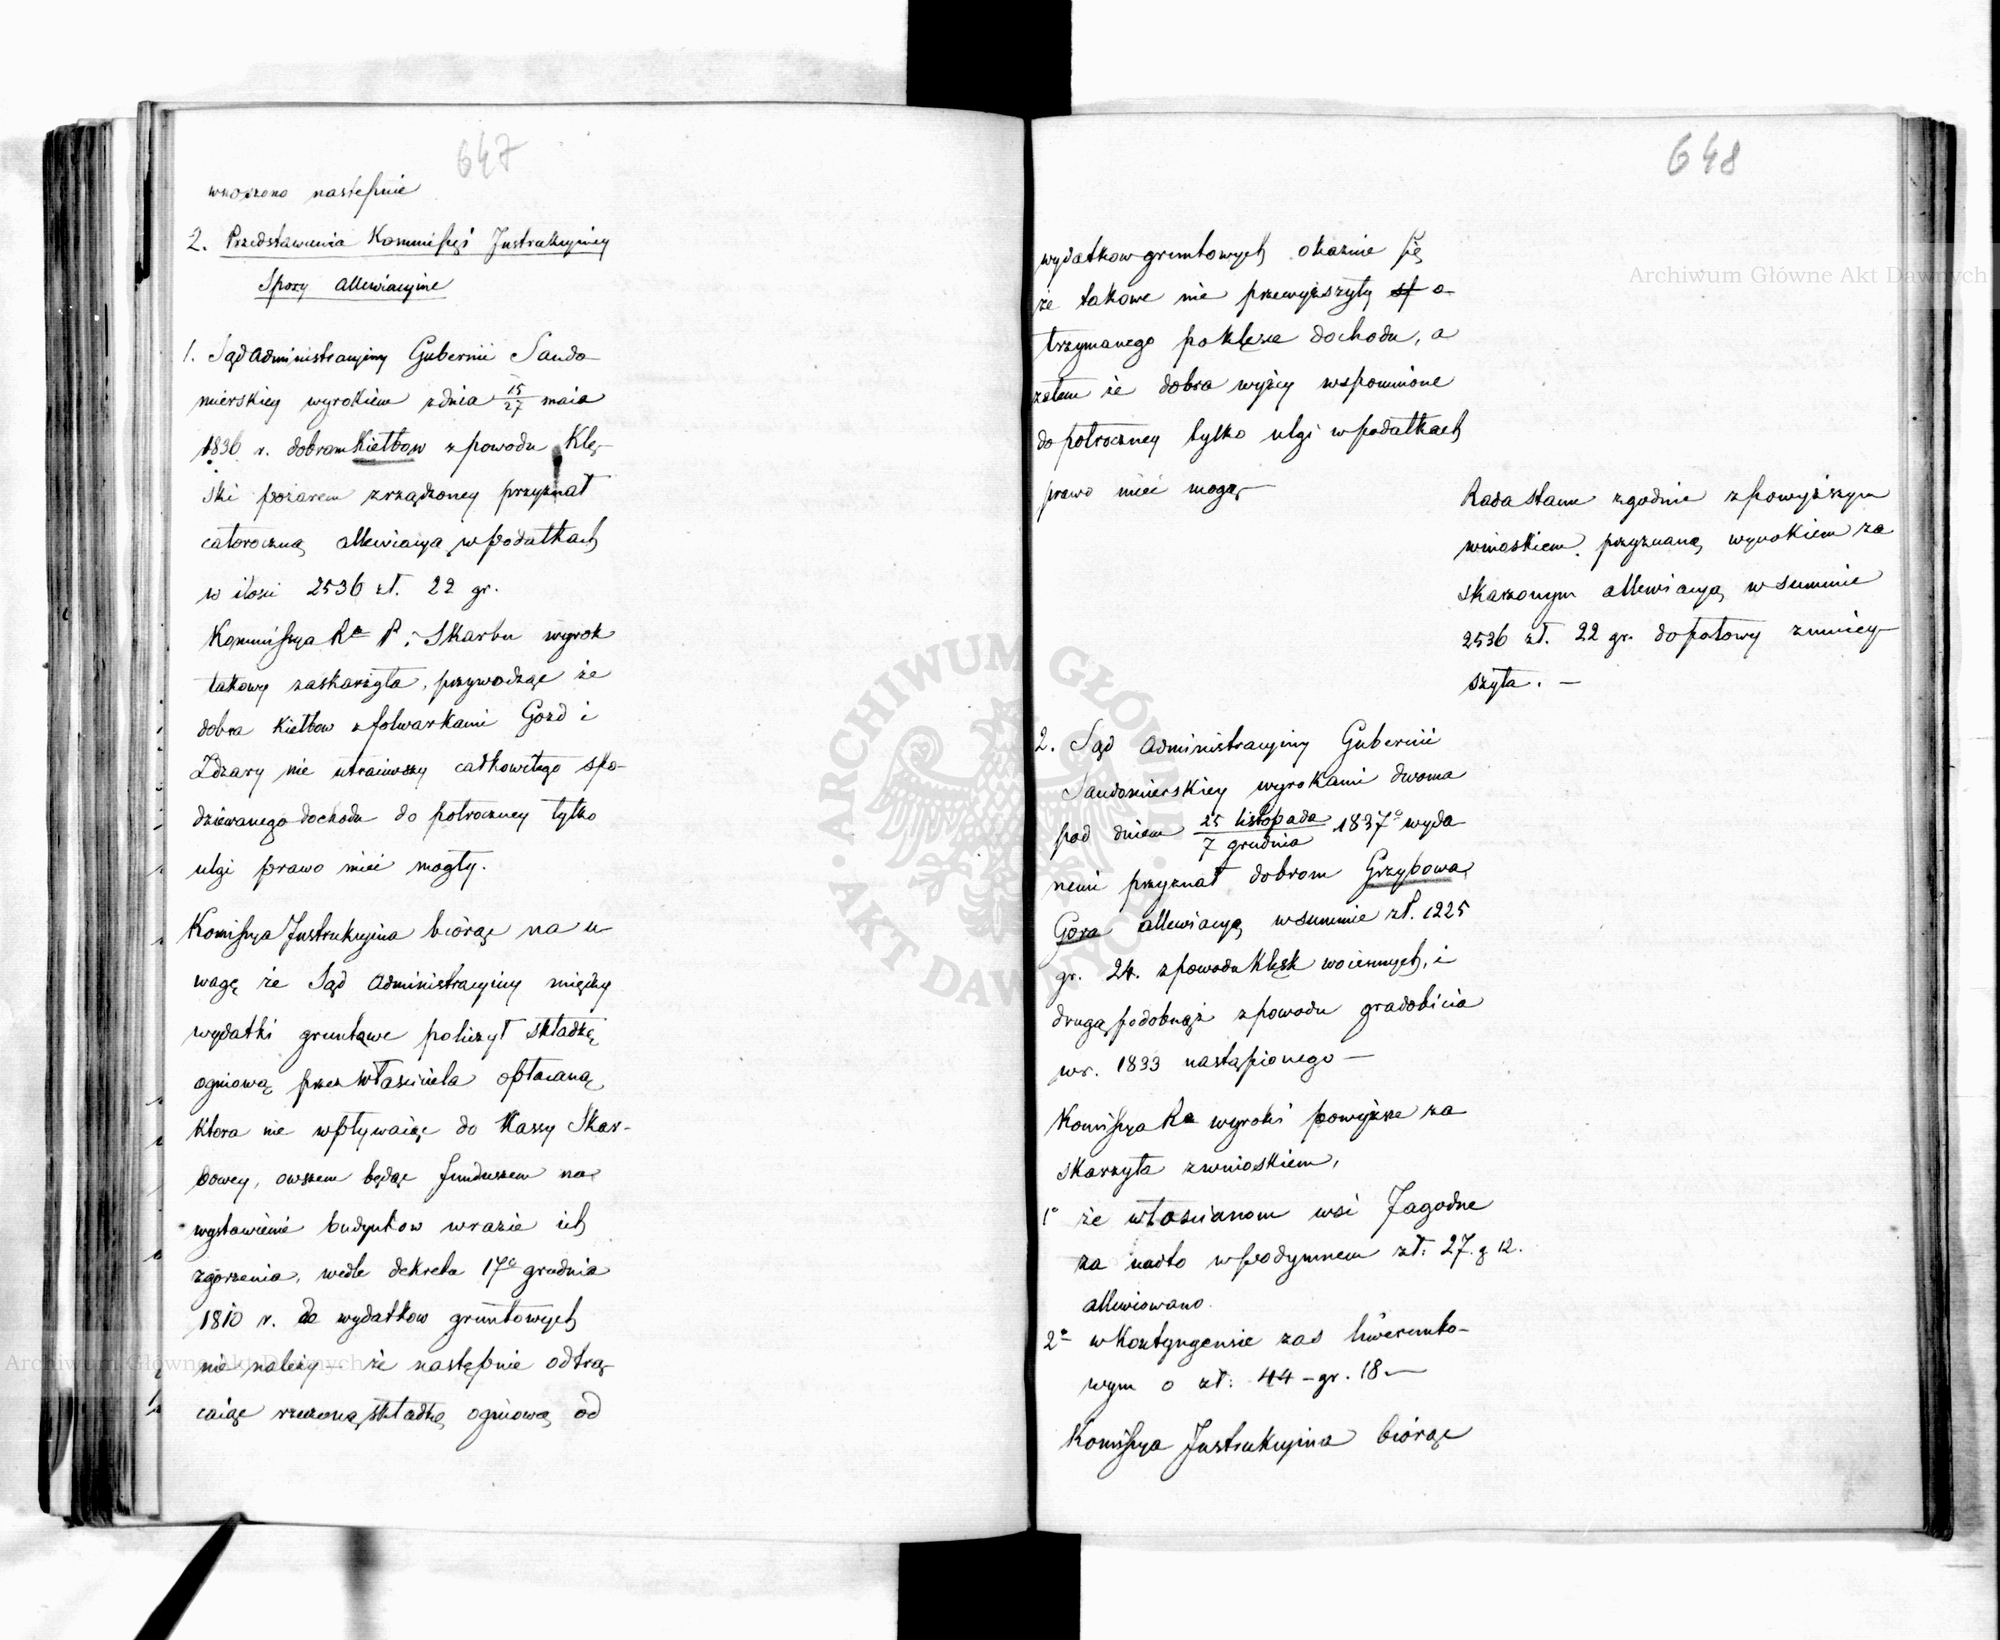 647
wnoszono następnie
2. Przedstawienia Kommissyi Instrukcyiney
Spory allewiacyine
1. Sąd Administracyiny Gubernii Sando-
mierskiey wyrokiem z dnia 15/27 maia
1836 r. dobram Kiełbow z powodu Klę-
ski pożarem zrządzoney przyznał
całoroczną allewiacyą w podatkach
w ilości 2536 zł. 22 gr.
Kommissya Ra P. i Skarbu wyrok
takowy zaskarżyła, przywodząc że
dobra Kiełbow z folwarkami Gozd i
Zdżary nie utraiwszy całkowitego spo-
dziewanego dochodu do połroczney tylko
ulgi prawo mieć mogły.
Komissya Instrukcyina biorąc na u-
wagę że Sąd Administracyiny między
wydatki gruntowe policzył składkę
ogniową przez właściciela opłacaną
ktora nie wpływaiąc do Kassy Skar-
bowey, owszem będąc funduszem na
wystawienie budynkow w razie ich
zgorzenia, wedle dekretu 17o grudnia
1810 r. do wydatkow gruntowych
nie należy – że następnie odtrą-
caiąc rzeczoną składkę ogniową od
648
wydatkow gruntowych okazuie się
że takowe nie przewyższyły o-
trzymanego po klęsce dochodu, a
zatem że dobra wyżey wspomnione
do połroczney tylko ulgi w podatkach
prawo mieć mogą –
Rada Stanu zgodnie z powyższym
wnioskiem przyznaną wyrokiem za
skarżonym allewiacyą w summie
2536 zł. 22 gr. do połowy zmniey-
szyła. –
2. Sąd Administracyiny Gubernii
Sandomierskiey wyrokami dwoma
pod dniem 25 listopada / 7 grudnia 1837o wyda
nemi przyznał dobrom Grzybowa
Gora allewiacyą w summie zł. 1225
gr. 24. z powodu Klęsk woiennych, i
drugą podobnąż z powodu gradobicia
w r. 1833 nastąpionego –
Komissya Ra wyroki powyższe za
skarżyła z wnioskiem,
1o że włościanom wsi Jagodne
za nadto w podymnem zł. 27. g 12.
allewiowano.
2o w Kontyngensie zas liwerunko-
wym o zł. 44 – gr. 18. –
Komissya Instrukcyina biorąc
Archiwum Główne Akt Dawnych
Archiwum Główne Akt Dawnych
ARCHIWUM GŁÓWNE AKT DAWNYCH